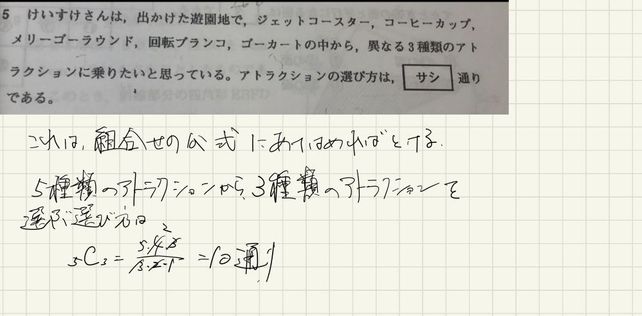 5 けいすけさんは，出かけた遊園地で，ジェットコースター，コーヒーカップ，
メリーゴーラウンド，回転ブランコ，ゴーカートの中から，異なる3種類のアト
ラクションに乗りたいと思っている。アトラクションの選び方は， サシ 通り
である。
これは，組合せの公式にあてはめればとける.
5種類のアトラクションから，3種類のアトラクションを
選ぶ選び方は
₅C₃ = 5·4·3/3·2·1 = 10通り
2